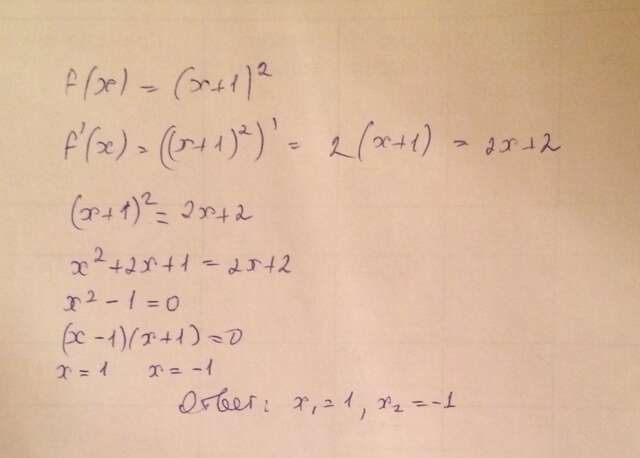 f(x) = (x+1)²
f'(x) = ((x+1)²)' = 2(x+1) = 2x+2
(x+1)² = 2x+2
x²+2x+1 = 2x+2
x² - 1 = 0
(x-1)(x+1)=0
x = 1 x = -1
Ответ: x₁ = 1, x₂ = -1